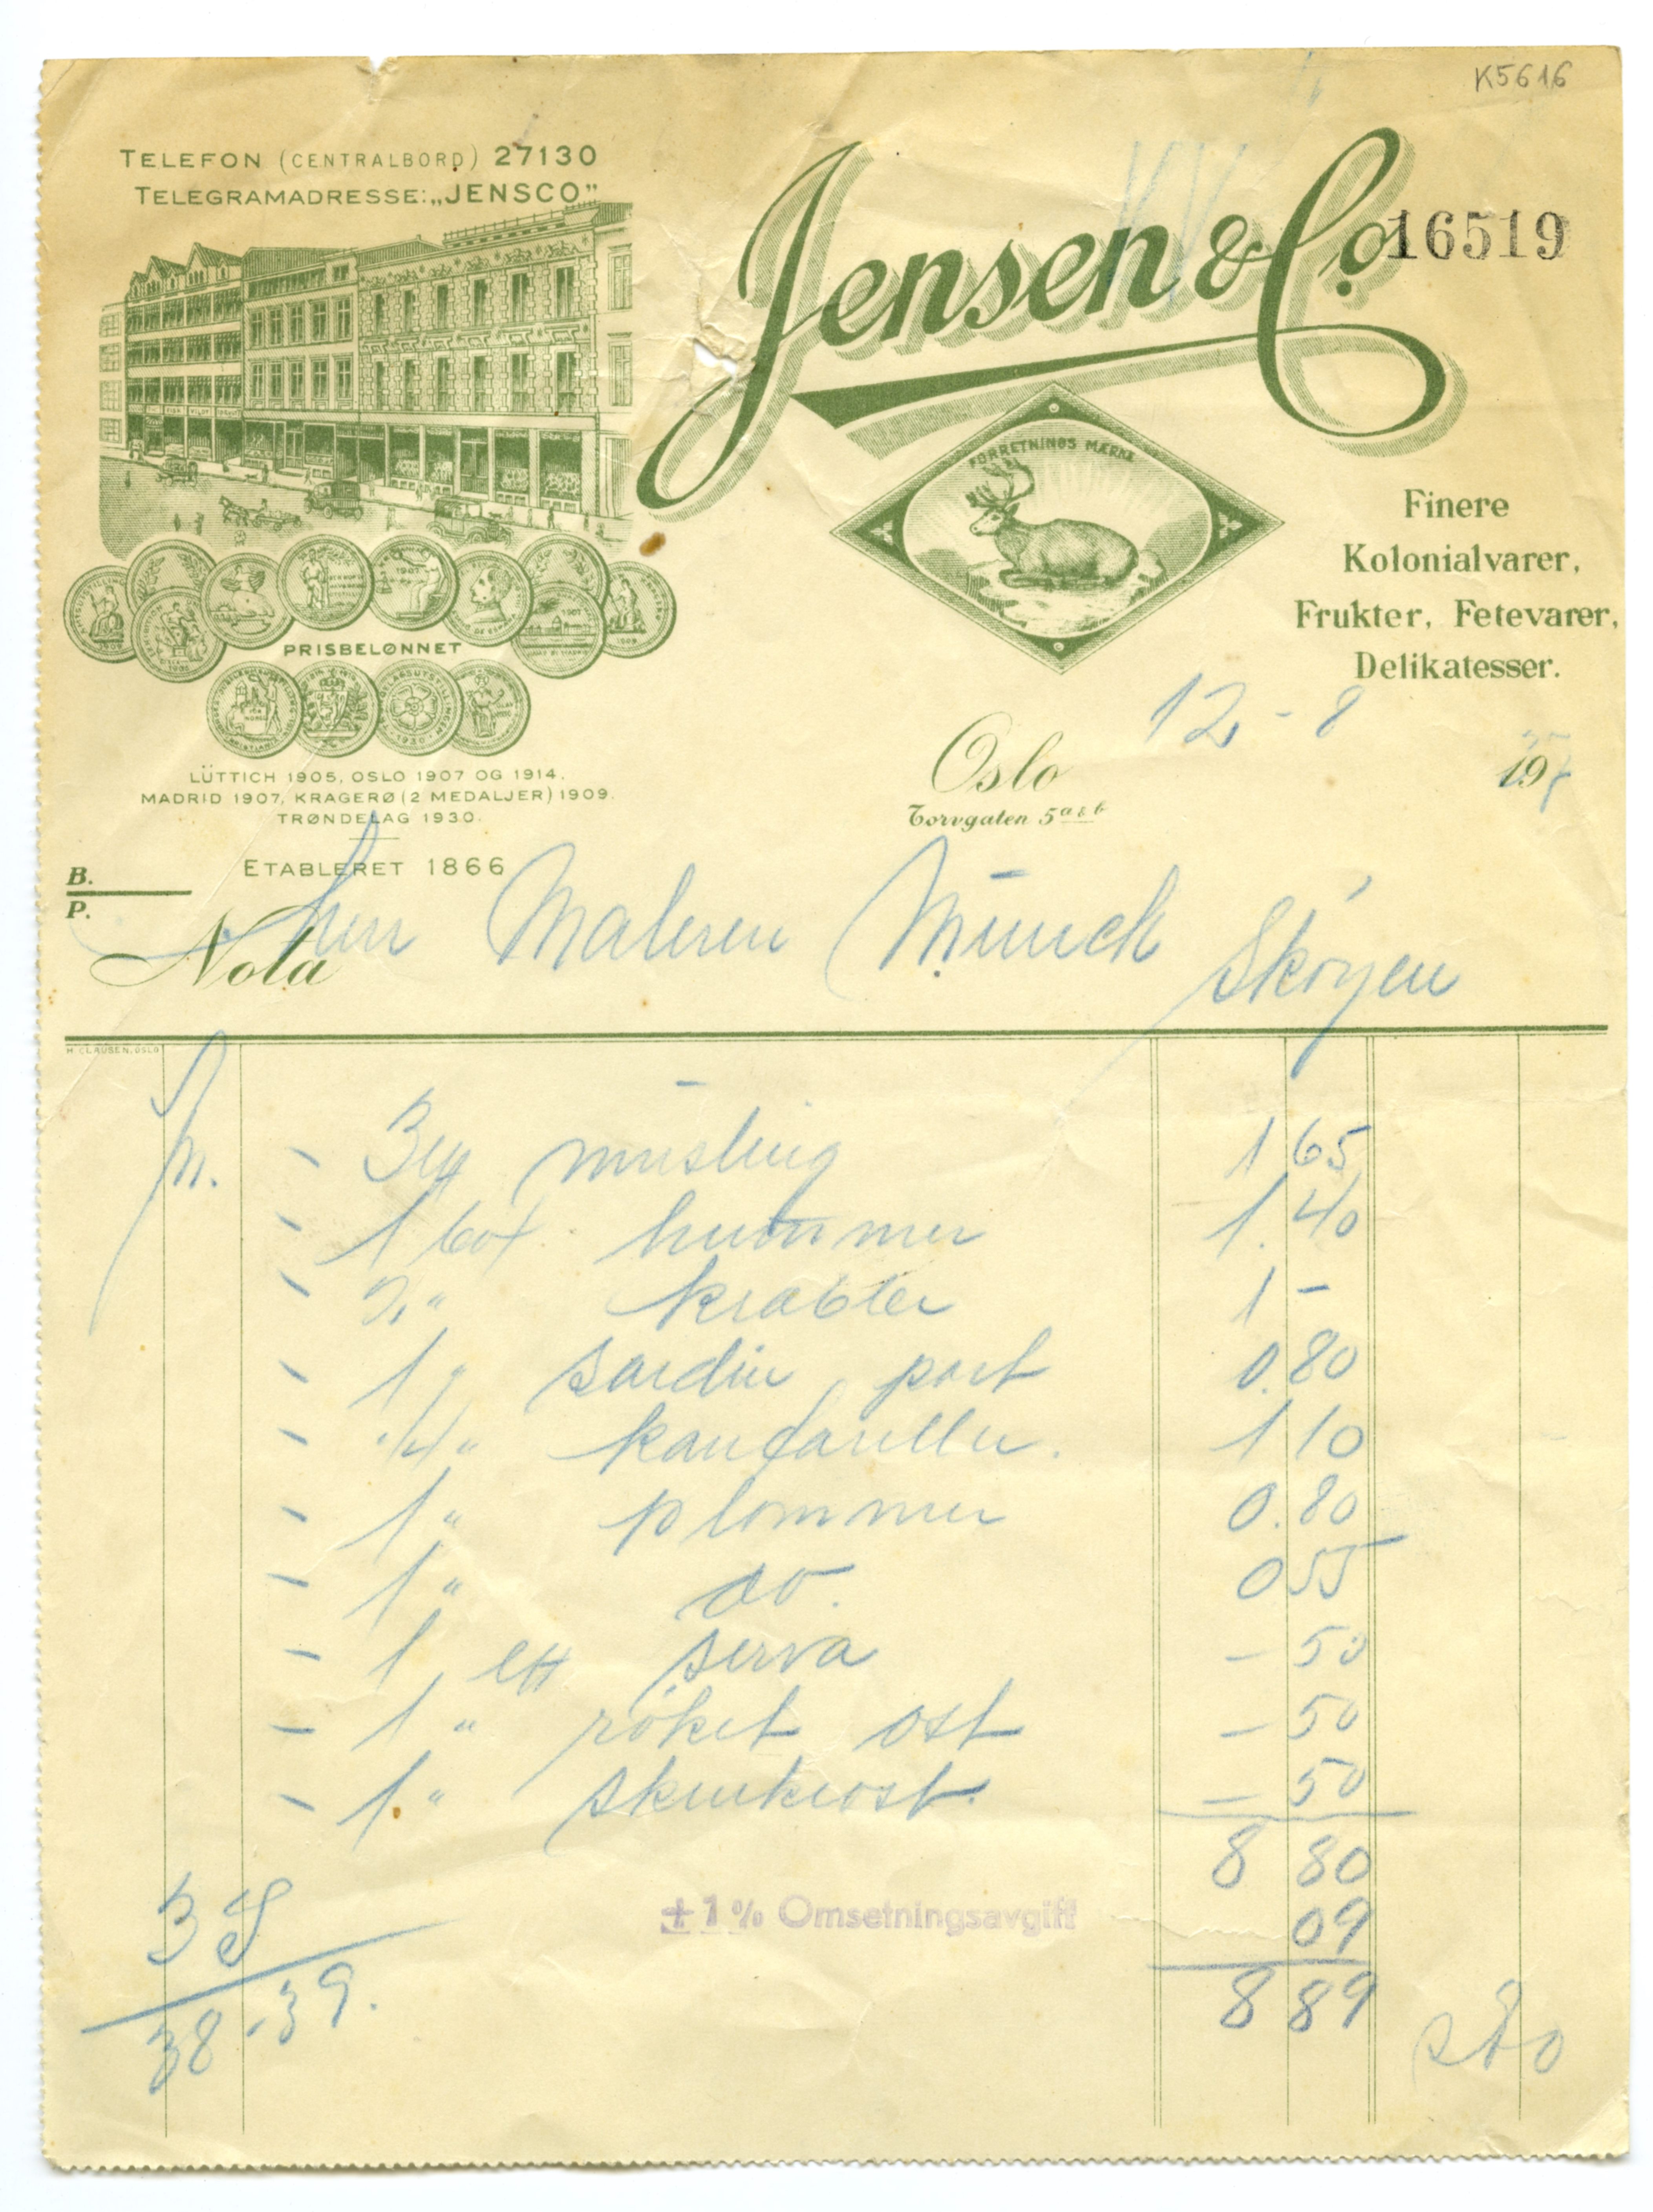 K5616
TELEFON (CENTRALBORD) 27130
TELEGRAMADRESSE: „JENSCO"
Jensen & Co.
16519
FORRETNINGS MÆRKE
Finere
Kolonialvarer,
Frukter, Fetevarer,
Delikatesser.
PRISBELØNNET
LÜTTICH 1905, OSLO 1907 OG 1914.
MADRID 1907, KRAGERØ (2 MEDALJER) 1909.
TRØNDELAG 1930.
ETABLERET 1866
Oslo 12-8 193
Torvgaten 5 a & b
B.
P.
Nota Herr Maleren Munch Skøyen
H. CLAUSEN, OSLO
- 3 musling 1 65
- 1 box hummer 1.40
- 2 " krabber 1 -
- 1 " sardin port 0.80
- 1/4 " kantareller. 1 10
- 1 " plommer 0.80
- 1 " do. 0 55
- 1 serva - 50
- 1 " röket ost - 50
- 1 " skinkeost. - 50
8 80
+ 1% Omsetningsavgift 09
8 89
38-39.